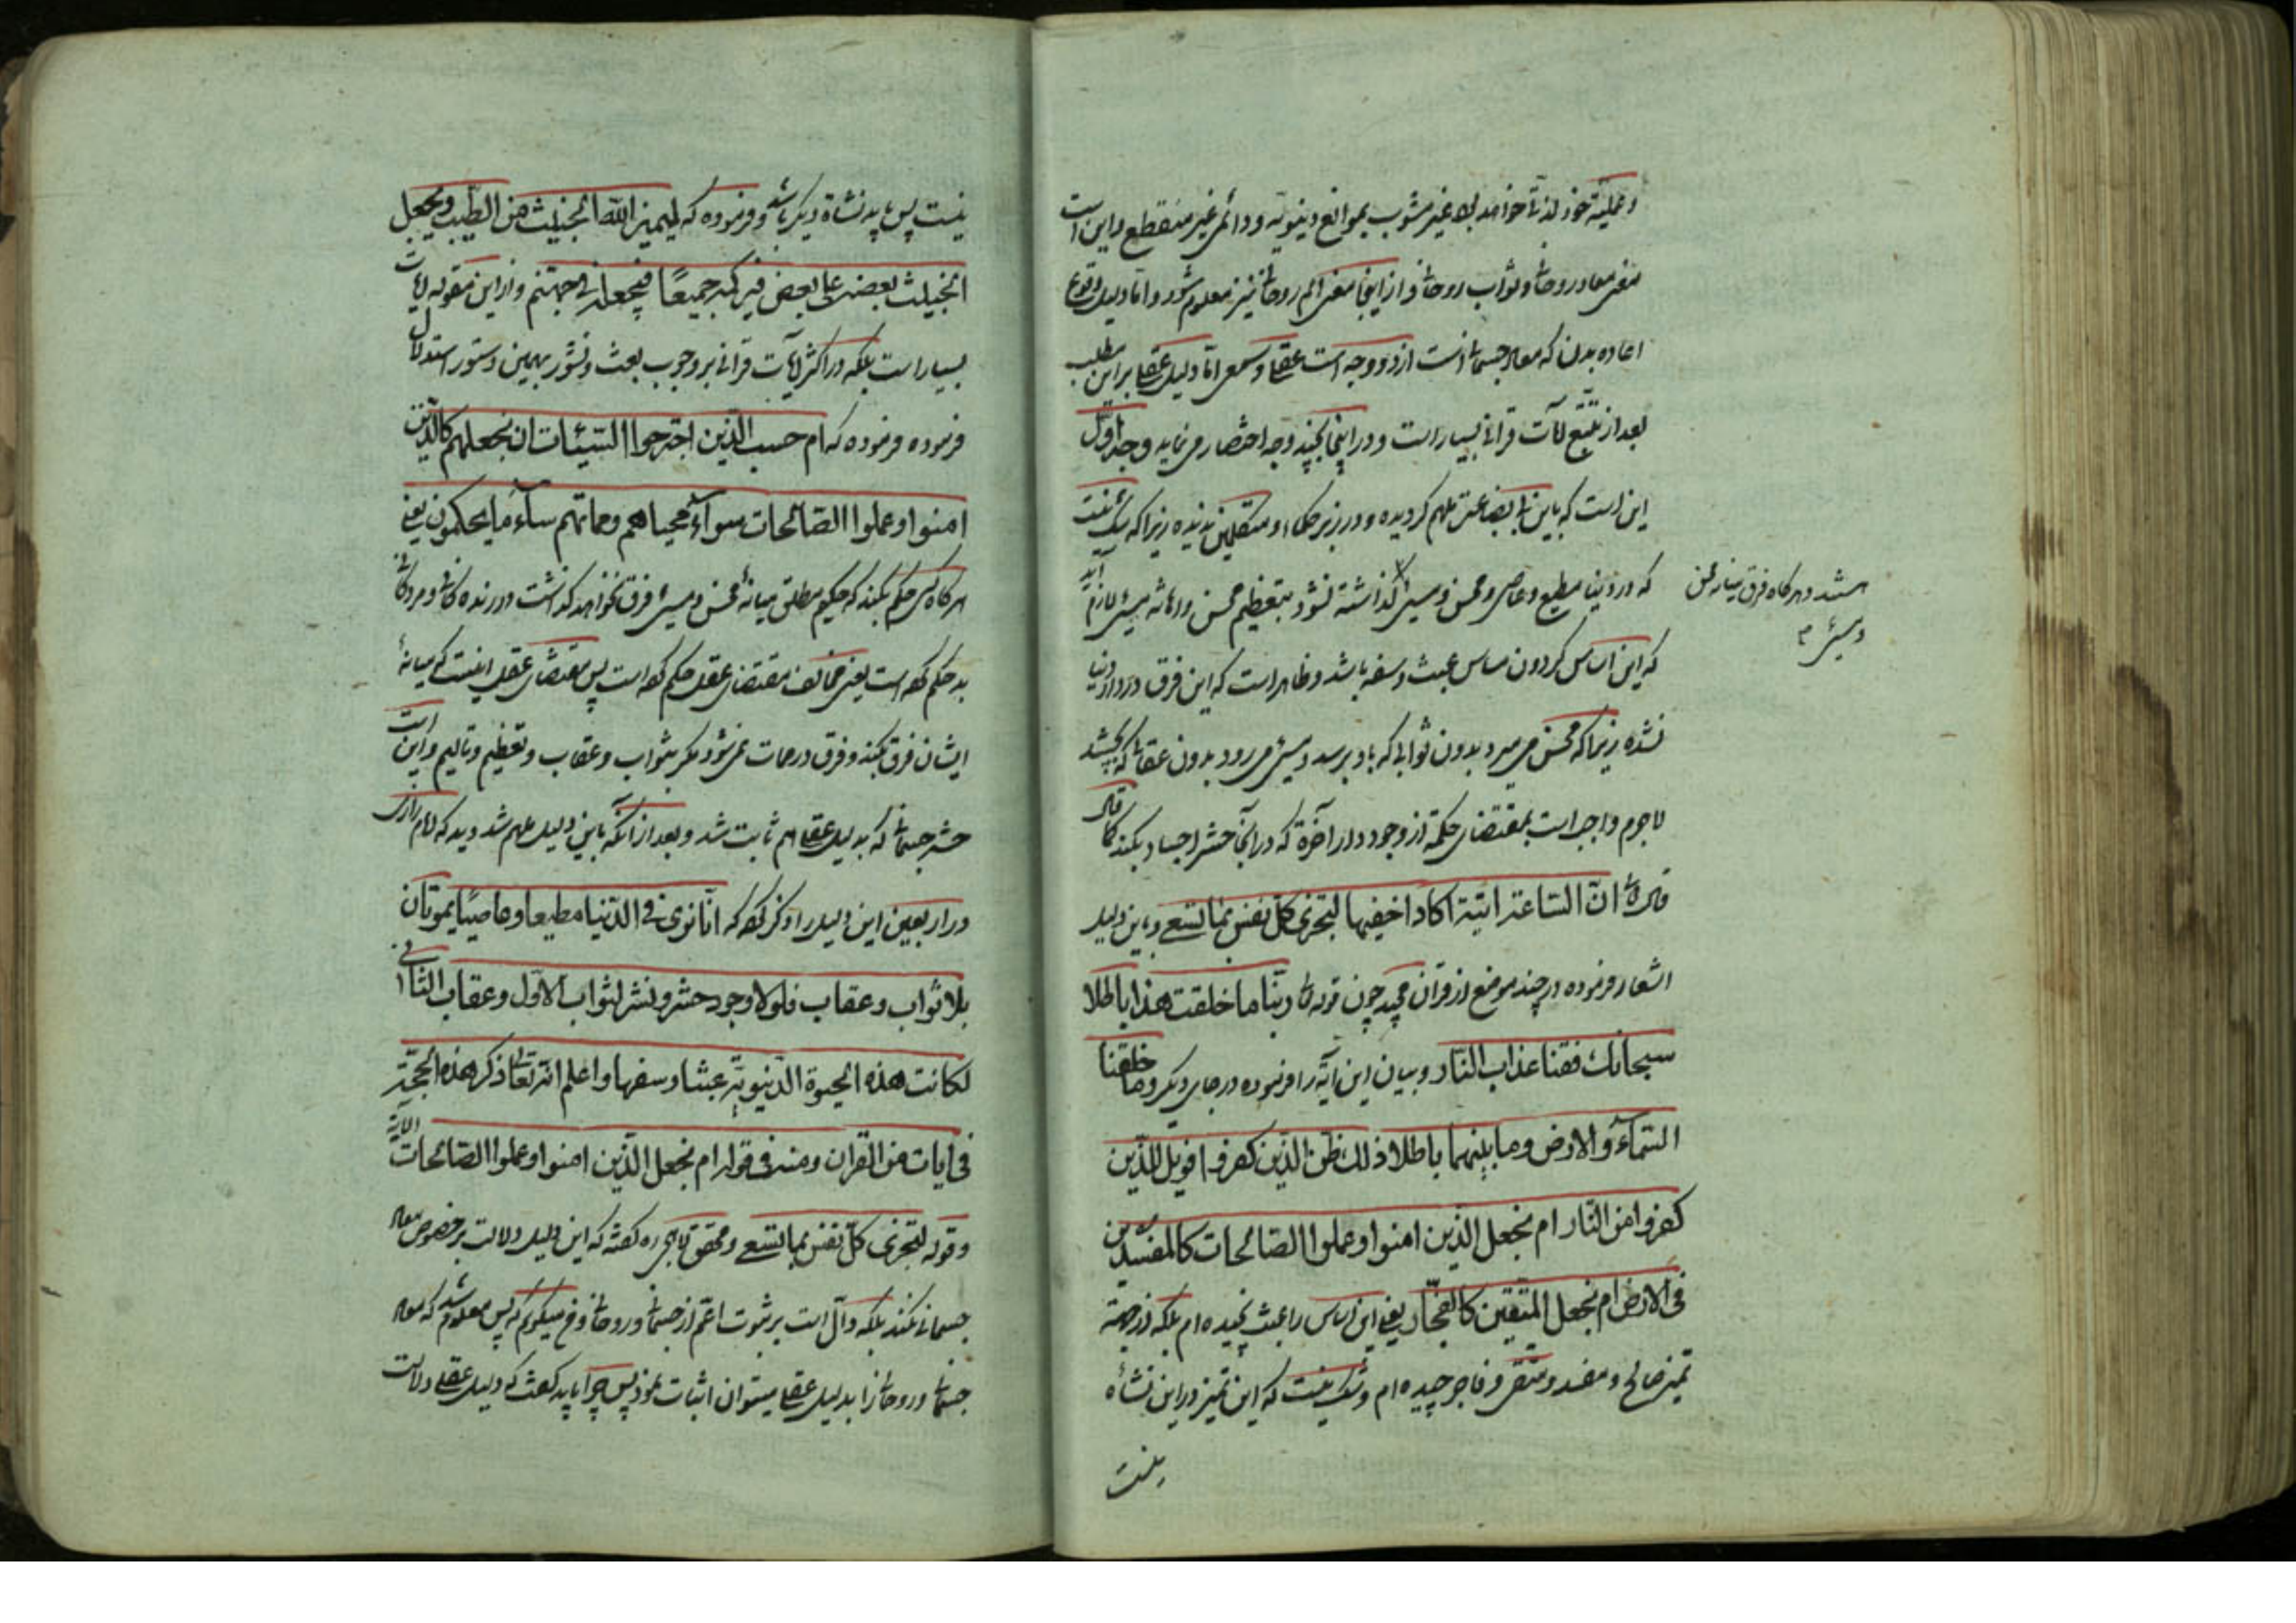 و عملیهٔ خود لذتها خواهد بلا غیر مشوب بموانع دنیویه و دائمی غیر منقطع و این است
معنی معاد روحانی و ثواب روحانی و از اینجا معنی الم روحانی نیز معلوم شود و اما دلیل وقوع
اعاده بدن که معاد جسمانی است از دو وجه است عقلی و سمعی اما دلیل عقلی بر این مطلب
بعد از تتبع آیات قرانی بسیار است و در اینجا بچند وجه اختصار می نماید وجه اول
این است که باین بی بضاعتی ملهم گردیده و در زبر حکماء و متکلمین ندیده زیرا که شک نیست
که در دنیا مطیع و عاصی و محسن و مسئ گذاشته نشود بتعظیم محسن و اهانه مسئ لازم آید
هستند و هرکاه فرق میانه محسن
و مسئ
که این اساس گردون مماس عبث و سفه باشد و ظاهر است که این فرق در دار دنیا
نشده زیرا که محسن می میرد بدون ثوابی که باو برسد و مسئ می رود بدون عقابی که بچشد
لاجرم واجب است بمقتضای حکمة از وجود دار آخرة که در آنجا حشر اجساد بکند کما قال
قال تعالی ان الساعة اتیة اکاد اخفیها لتجزی کل نفس بما تسعی و باین دلیل
اشعار فرموده در چند موضع از قران مجید چون قوله تعالی ربنا ما خلقت هذا باطلا
سبحانک فقنا عذاب النار و بیان این آیه را فرموده در جای دیگر و ما خلقنا
السماء و الارض و ما بینهما باطلا ذلک ظن الذین کفروا فویل للذین
کفروا من النار ام نجعل الذین امنوا و عملوا الصالحات کالمفسدین
فی الارض ام نجعل المتقین کالفجار یعنی این اساس را عبث نچیده ام بلکه از جهة
تمیز صالح و مفسد و متقی و فاجر چیده ام و شک نیست که این تمیز در این نشأه
نیست
نیست پس باید نشاة دیگر باشد و فرموده که لیمیز الله الخبیث من الطیب و یجعل
الخبیث بعضه علی بعض فیرکمه جمیعًا فیجعله فی جهنم و از این مقوله آیات
بسیار است بلکه در اکثر آیات قرانی بر وجوب بعث و نشور بهمین دستور استدلال
فرموده فرموده که ام حسب الذین اجترحوا السیئات ان نجعلهم کالذین
امنوا و عملوا الصالحات سوآءً محیاهم و مماتهم سآء ما یحکمون یعنی
هرکاه کسی حکم بکند که حکیم مطلق میانهٔ محسن و مسئ فرق نخواهد گذاشت در زندگانی و مردگانی
بد حکم کرده است یعنی مخالف مقتضای عقل حکم کرده است پس مقتضای عقل اینست که میانهٔ
ایشان فرق بکند و فرق در ممات نمی شود مگر بثواب و عقاب و تعظیم و تالیم و این است
حشر جسمانی که بدلیل عقلی هم ثابت شد و بعد از آنکه باین دلیل ملهم شد دید که امام رازی
در اربعین این دلیل را ذکر کرده که انا نری فی الدنیا مطیعا و عاصیًا یموتان
بلا ثواب و عقاب فلولا وجود حشر و نشر لثواب الاول و عقاب الثانی
لکانت هذه الحیوة الدنیویة عبثا و سفها و اعلم انه تعالی ذکر هذه الحجة
فی ایات من القران و منه فی قوله ام نجعل الذین امنوا و عملوا الصالحات الآیة
و قوله لتجزی کل نفس بما تسعی و محقق لاهیجی ره گفته که این دلیل دلالت بر خصوص معاد
جسمانی نکند بلکه دال است بر ثبوت اعم از جسمانی و روحانی و ح میگویم که پس معلوم شد که معاد
جسمانی و روحانی را بدلیل عقلی میتوان اثبات نمود پس چرا باید گفت که دلیل عقلی دلالت